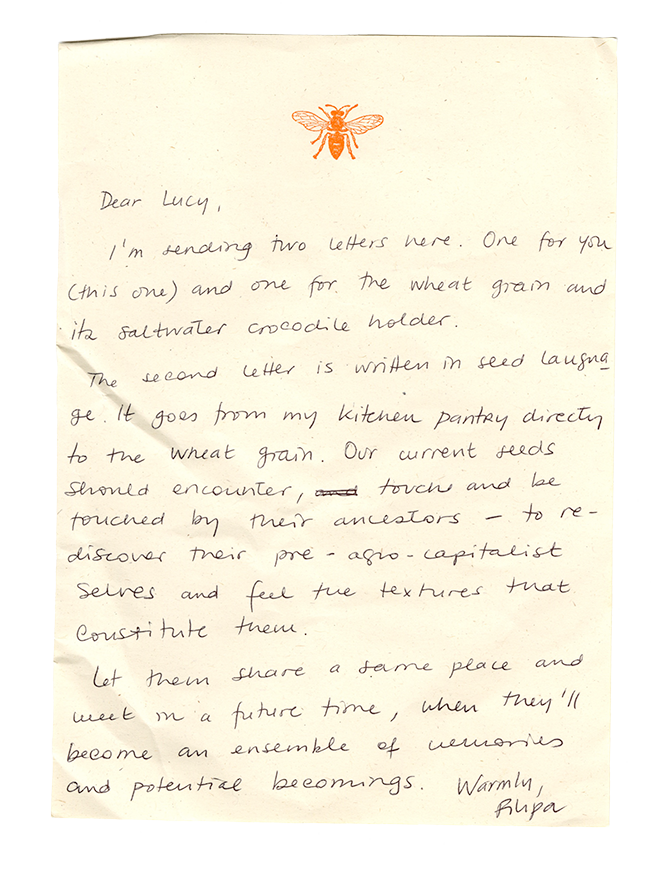 Dear Lucy,
I'm sending two letters here. One for you
(this one) and one for the wheat grain and
its saltwater crocodile holder.
The second letter is written in seed laugna
ge. It goes from my kitchen pantry directly
to the wheat grain. Our current seeds
should encounter, and touch and be
touched by their ancestors – to re-
discover their pre-agro-capitalist
selves and feel the textures that
constitute them.
Let them share a same place and
meet in a future time, when they'll
become an ensemble of memories
and potential becomings. Warmly,
Filipa